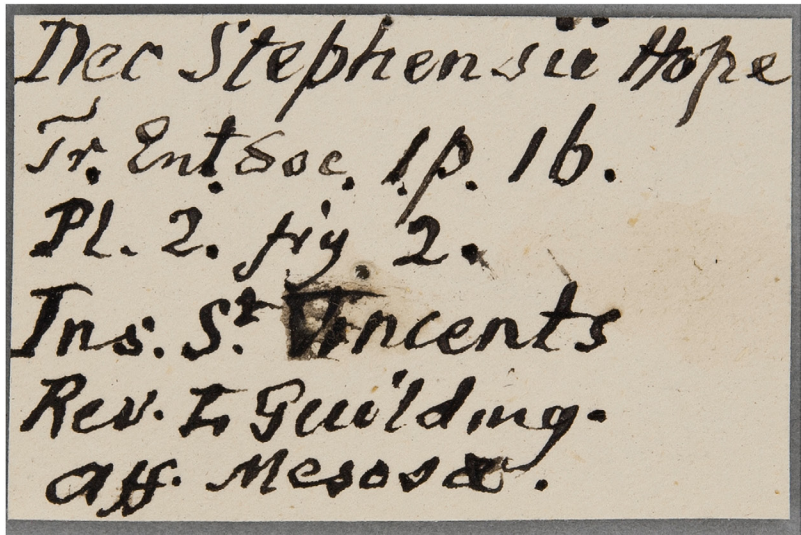 Dec Stephensii Hope
Tr. Ent. Soc. 1. p. 16.
Pl. 2. fig. 2.
Ins. St. Vincents
Rev. L Guilding.
aff. Mesosæ.